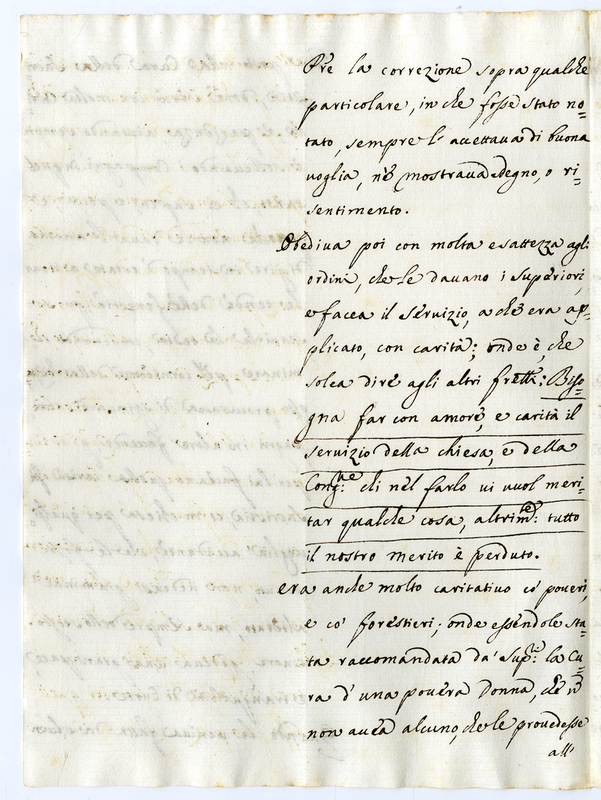 Pre la correzione sopra qualche
particolare, in che fosse stato no=
tato, sempre l'accettava di buona
voglia, nè mostrava sdegno, o ri=
sentimento.
Obediva poi con molta esattezza agli
ordini, che le davano i superiori,
e facea il servizio, a che era ap=
plicato, con carità; onde è, che
solea dire agli altri frelli: Biso=
gna far con amore, e carità il
servizio della chiesa, e della
Cong:ne chi nel farlo vi vuol meri=
tar qualche cosa, altrim:te tutto
il nostro merito è perduto.
era anche molto caritativo co' poveri,
e co' forestieri; onde essendole sta=
ta raccomandata da' Sup:ri la Cu=
ra d'una povera donna, che
non avea alcuno, che le provedesse
all'